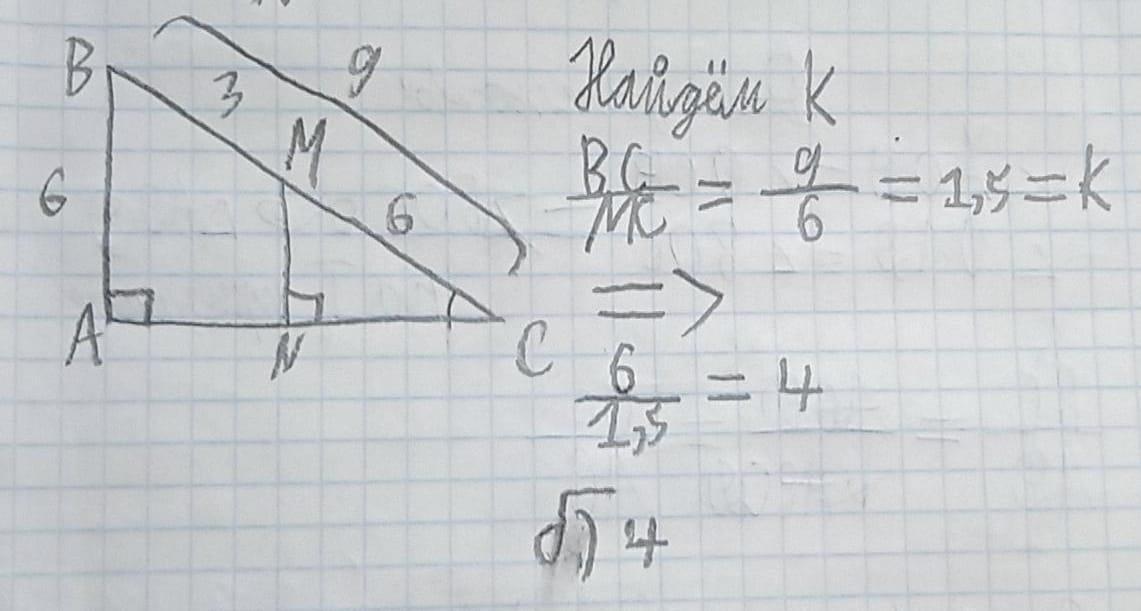 B
3
9
M
6
6
A
N
C
Найдём K
BC/MC = 9/6 = 1,5 = K
=>
6/1,5 = 4
б) 4